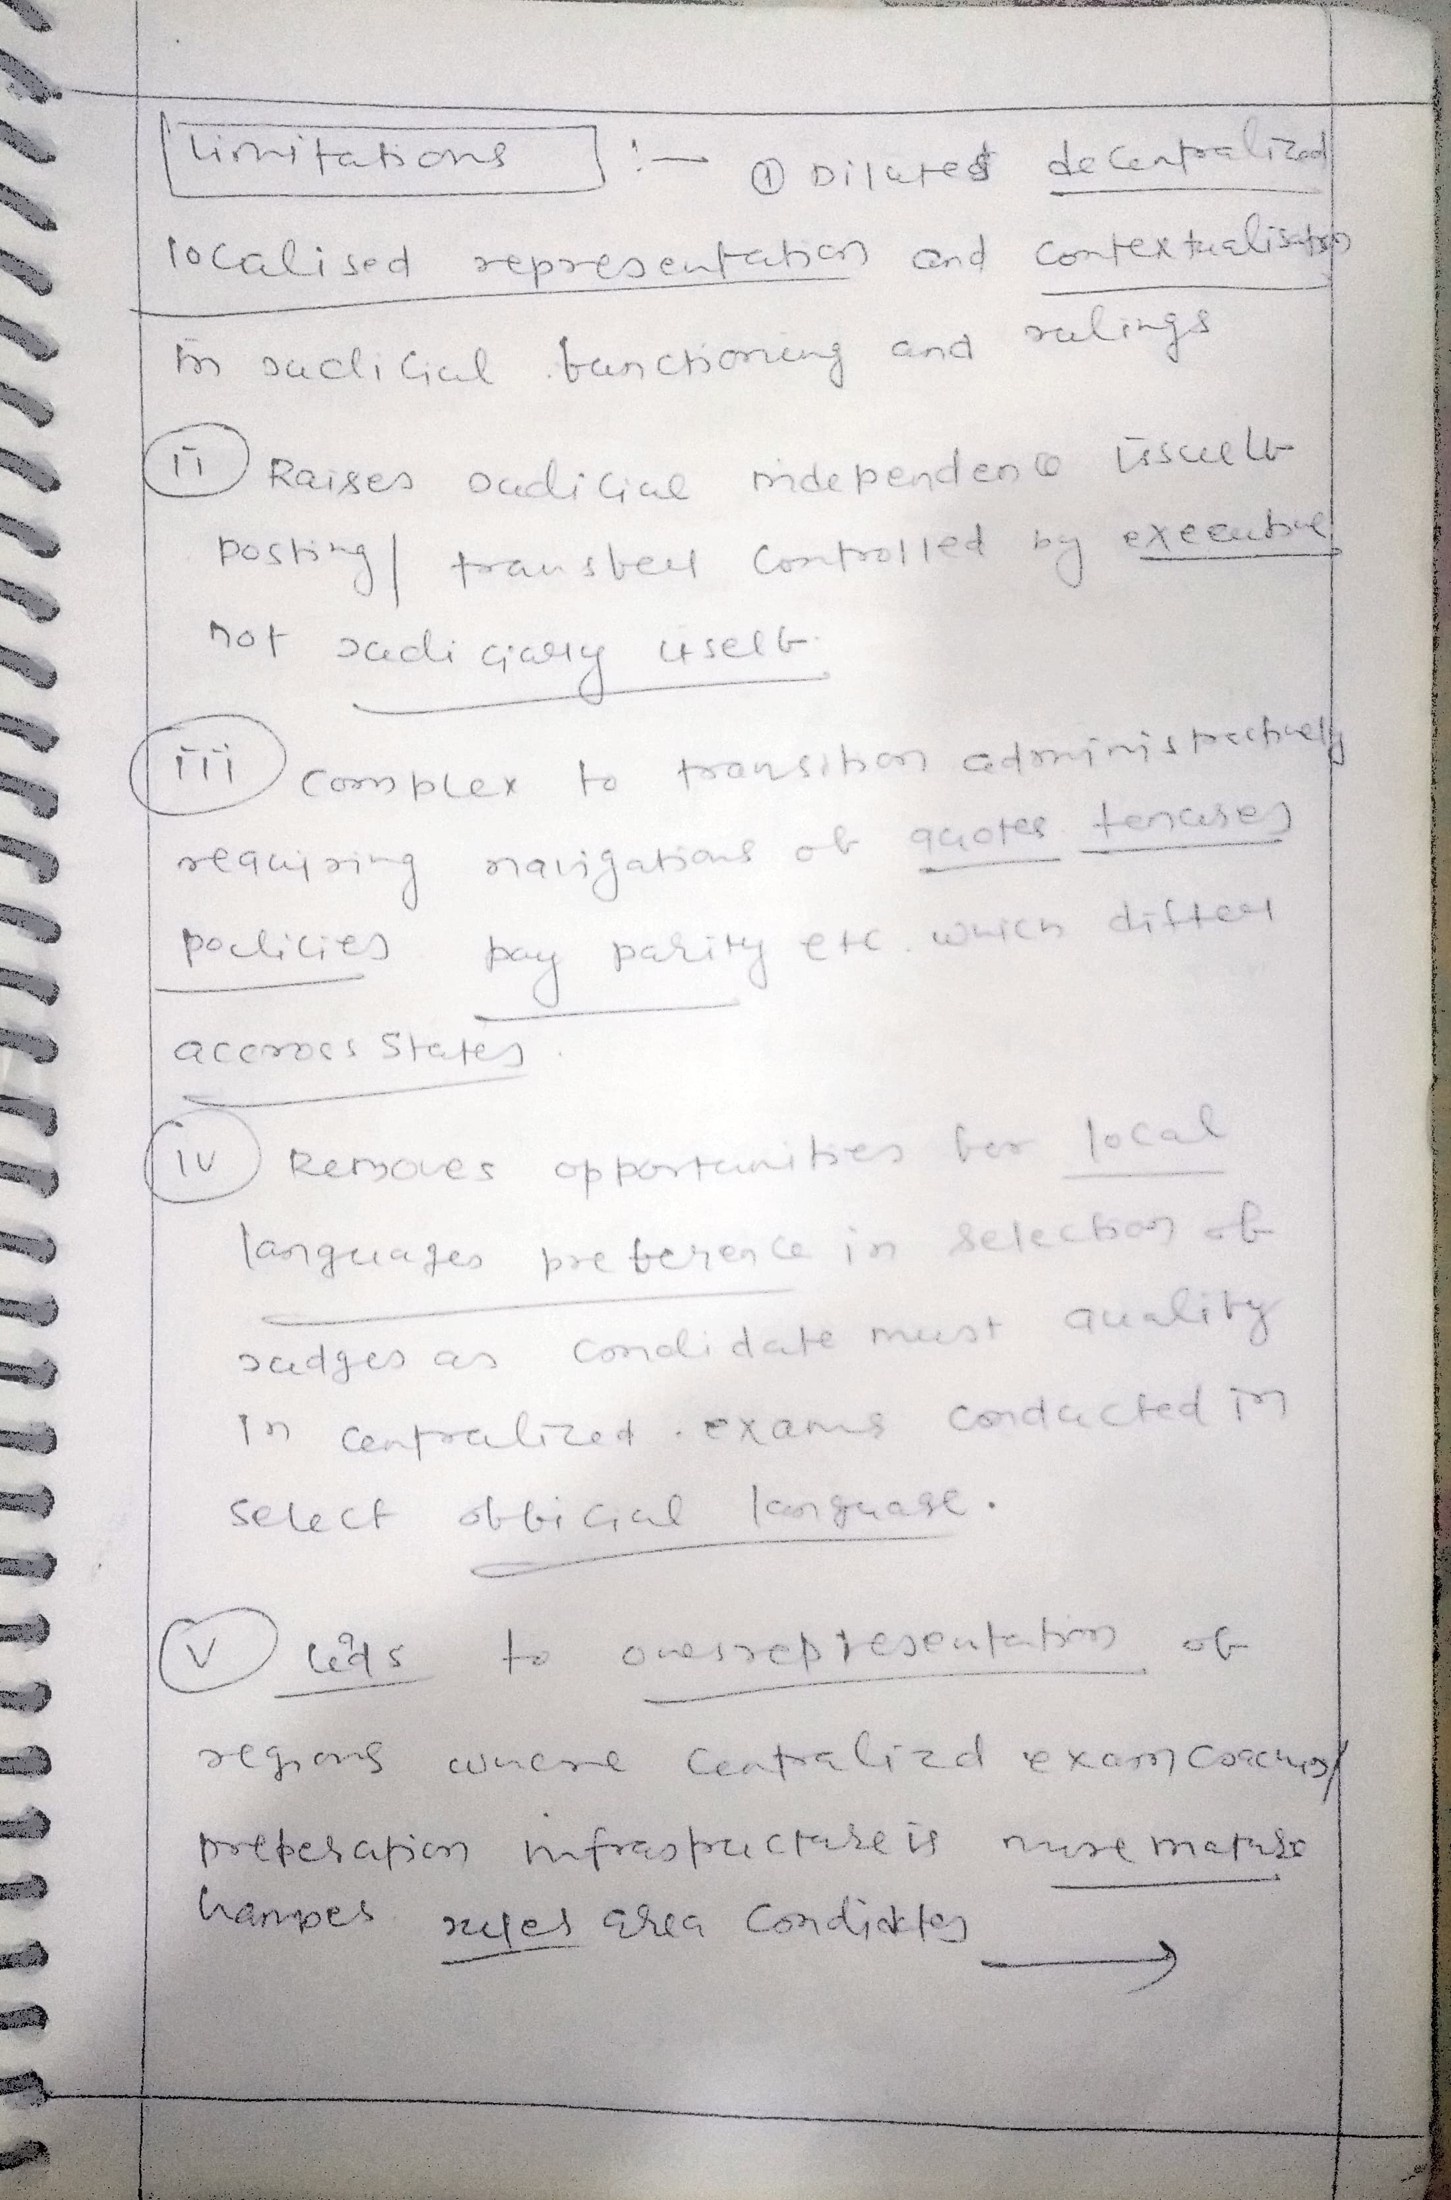 Limitations :- ① Dilutes decentralized
localised representation and contextualisation
in judicial functioning and rulings
ii Raises judicial independence issue
posting/ transfer controlled by executive
not judiciary itself.
iii Complex to transition administratively
requiring navigations of quotes tenures
policies pay parity etc. which differ
accross States.
iv Removes opportunities for local
languages preference in selection of
judges as condidate must qualify
in centralized exams conducted in
select official language.
v to overrepresentation of
regions where centralizd exam coaching/
preperation infrastructure is more mature
hampes area condidates